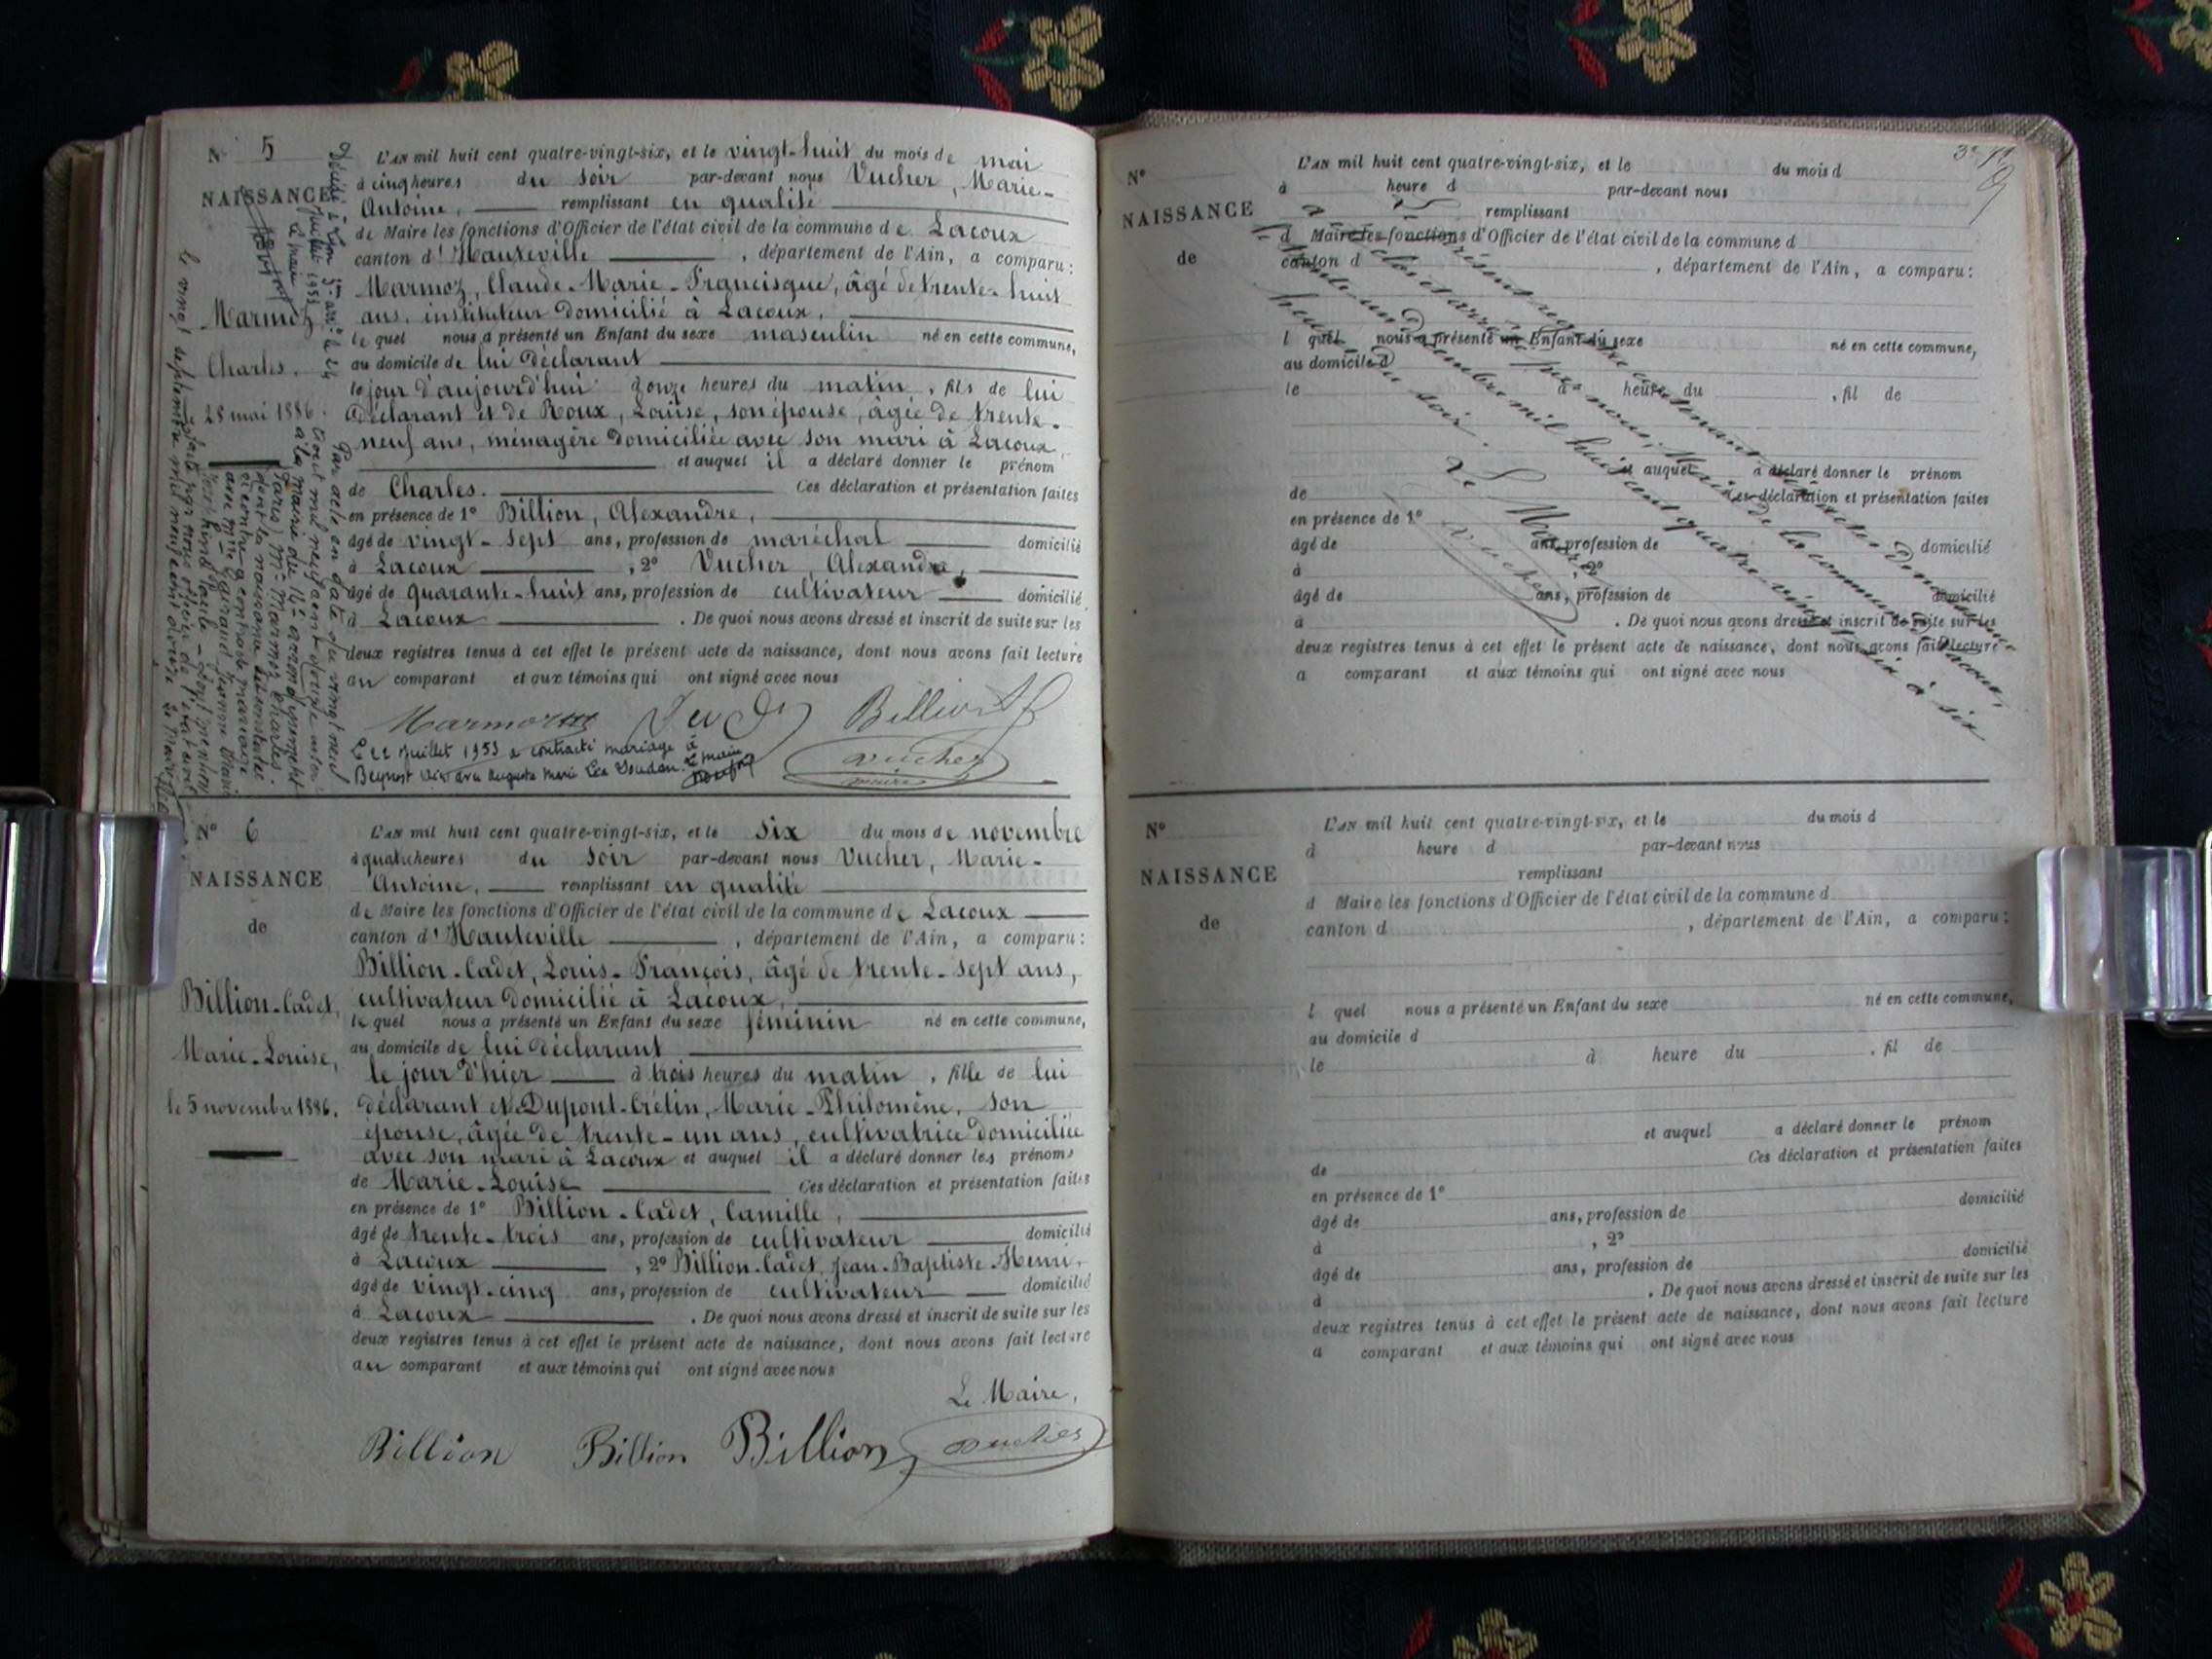 N° 5
NAISSANCE
Marmoz
Charles.
28 mai 1886.
L'AN mil huit cent quatre-vingt-six, et le vingt-huit du mois de mai
à cinq heures du soir par-devant nous Vucher, Marie-
Antoine, remplissant en qualité
de Maire les fonctions d'Officier de l'état civil de la commune de Lacoux
canton d'Hauteville, département de l'Ain, a comparu:
Marmoz, Claude-Marie-Francisque, âgé de trente-huit
ans, instituteur domicilié à Lacoux,
lequel nous a présenté un Enfant du sexe masculin né en cette commune,
au domicile de lui déclarant
le jour d'aujourd'hui à onze heures du matin, fils de lui
déclarant et de Roux, Louise, son épouse, âgée de trente-
neuf ans, ménagère domiciliée avec son mari à Lacoux,
et auquel il a déclaré donner le prénom
de Charles. Ces déclaration et présentation faites
en présence de 1° Billion, Alexandre,
âgé de vingt-sept ans, profession de maréchal domicilié
à Lacoux, 2° Vucher, Alexandre,
âgé de quarante-huit ans, profession de cultivateur domicilié
à Lacoux. De quoi nous avons dressé et inscrit de suite sur les
deux registres tenus à cet effet le présent acte de naissance, dont nous avons fait lecture
au comparant et aux témoins qui ont signé avec nous
Marmoz Billion
Vucher
maire
Le 22 Juillet 1953 a contracté mariage à
Beynost Marie Léa
N° 6
NAISSANCE
de
Billion-Cadet,
Marie-Louise,
le 5 novembre 1886.
L'AN mil huit cent quatre-vingt-six, et le six du mois de novembre
à quatre heures du soir par-devant nous Vucher, Marie-
Antoine, remplissant en qualité
de Maire les fonctions d'Officier de l'état civil de la commune de Lacoux
canton d'Hauteville, département de l'Ain, a comparu:
Billion-Cadet, Louis-François, âgé de trente-sept ans,
cultivateur domicilié à Lacoux,
lequel nous a présenté un Enfant du sexe féminin né en cette commune,
au domicile de lui déclarant
le jour d'hier à trois heures du matin, fille de lui
déclarant et Dupont-Crétin, Marie-Philomène, son
épouse, âgée de trente-un ans, cultivatrice domiciliée
avec son mari à Lacoux et auquel il a déclaré donner les prénoms
de Marie-Louise Ces déclaration et présentation faites
en présence de 1° Billion-Cadet, Camille,
âgé de trente-trois ans, profession de cultivateur domicilié
à Lacoux, 2° Billion-Cadet, Jean-Baptiste-Henri,
âgé de vingt-cinq ans, profession de cultivateur domicilié
à Lacoux. De quoi nous avons dressé et inscrit de suite sur les
deux registres tenus à cet effet le présent acte de naissance, dont nous avons fait lecture
au comparant et aux témoins qui ont signé avec nous
Le Maire,
Billion Billion Billion Vucher
N°
NAISSANCE
de
L'AN mil huit cent quatre-vingt-six, et le du mois d
à heure d par-devant nous
remplissant
d Maire les fonctions d'Officier de l'état civil de la commune d
canton d, département de l'Ain, a comparu:
l quel nous a présenté un Enfant du sexe né en cette commune,
au domicile d
le à heure du, fil de
et auquel a déclaré donner le prénom
de Ces déclaration et présentation faites
en présence de 1°
âgé de ans, profession de domicilié
à, 2°
âgé de ans, profession de domicilié
à. De quoi nous avons dressé et inscrit de suite sur les
deux registres tenus à cet effet le présent acte de naissance, dont nous avons fait lecture
a comparant et aux témoins qui ont signé avec nous
présent registre actes de naissance
a clos et arrêté par nous, Maire de la commune de Lacoux,
le trente un décembre mil huit cent quatre-vingt-six à six
heures du soir.
Le Maire,
Vucher
N°
NAISSANCE
de
L'AN mil huit cent quatre-vingt-six, et le du mois d
à heure d par-devant nous
remplissant
d Maire les fonctions d'Officier de l'état civil de la commune d
canton d, département de l'Ain, a comparu:
l quel nous a présenté un Enfant du sexe né en cette commune,
au domicile d
le à heure du, fil de
et auquel a déclaré donner le prénom
de Ces déclaration et présentation faites
en présence de 1°
âgé de ans, profession de domicilié
à, 2°
âgé de ans, profession de domicilié
à. De quoi nous avons dressé et inscrit de suite sur les
deux registres tenus à cet effet le présent acte de naissance, dont nous avons fait lecture
a comparant et aux témoins qui ont signé avec nous